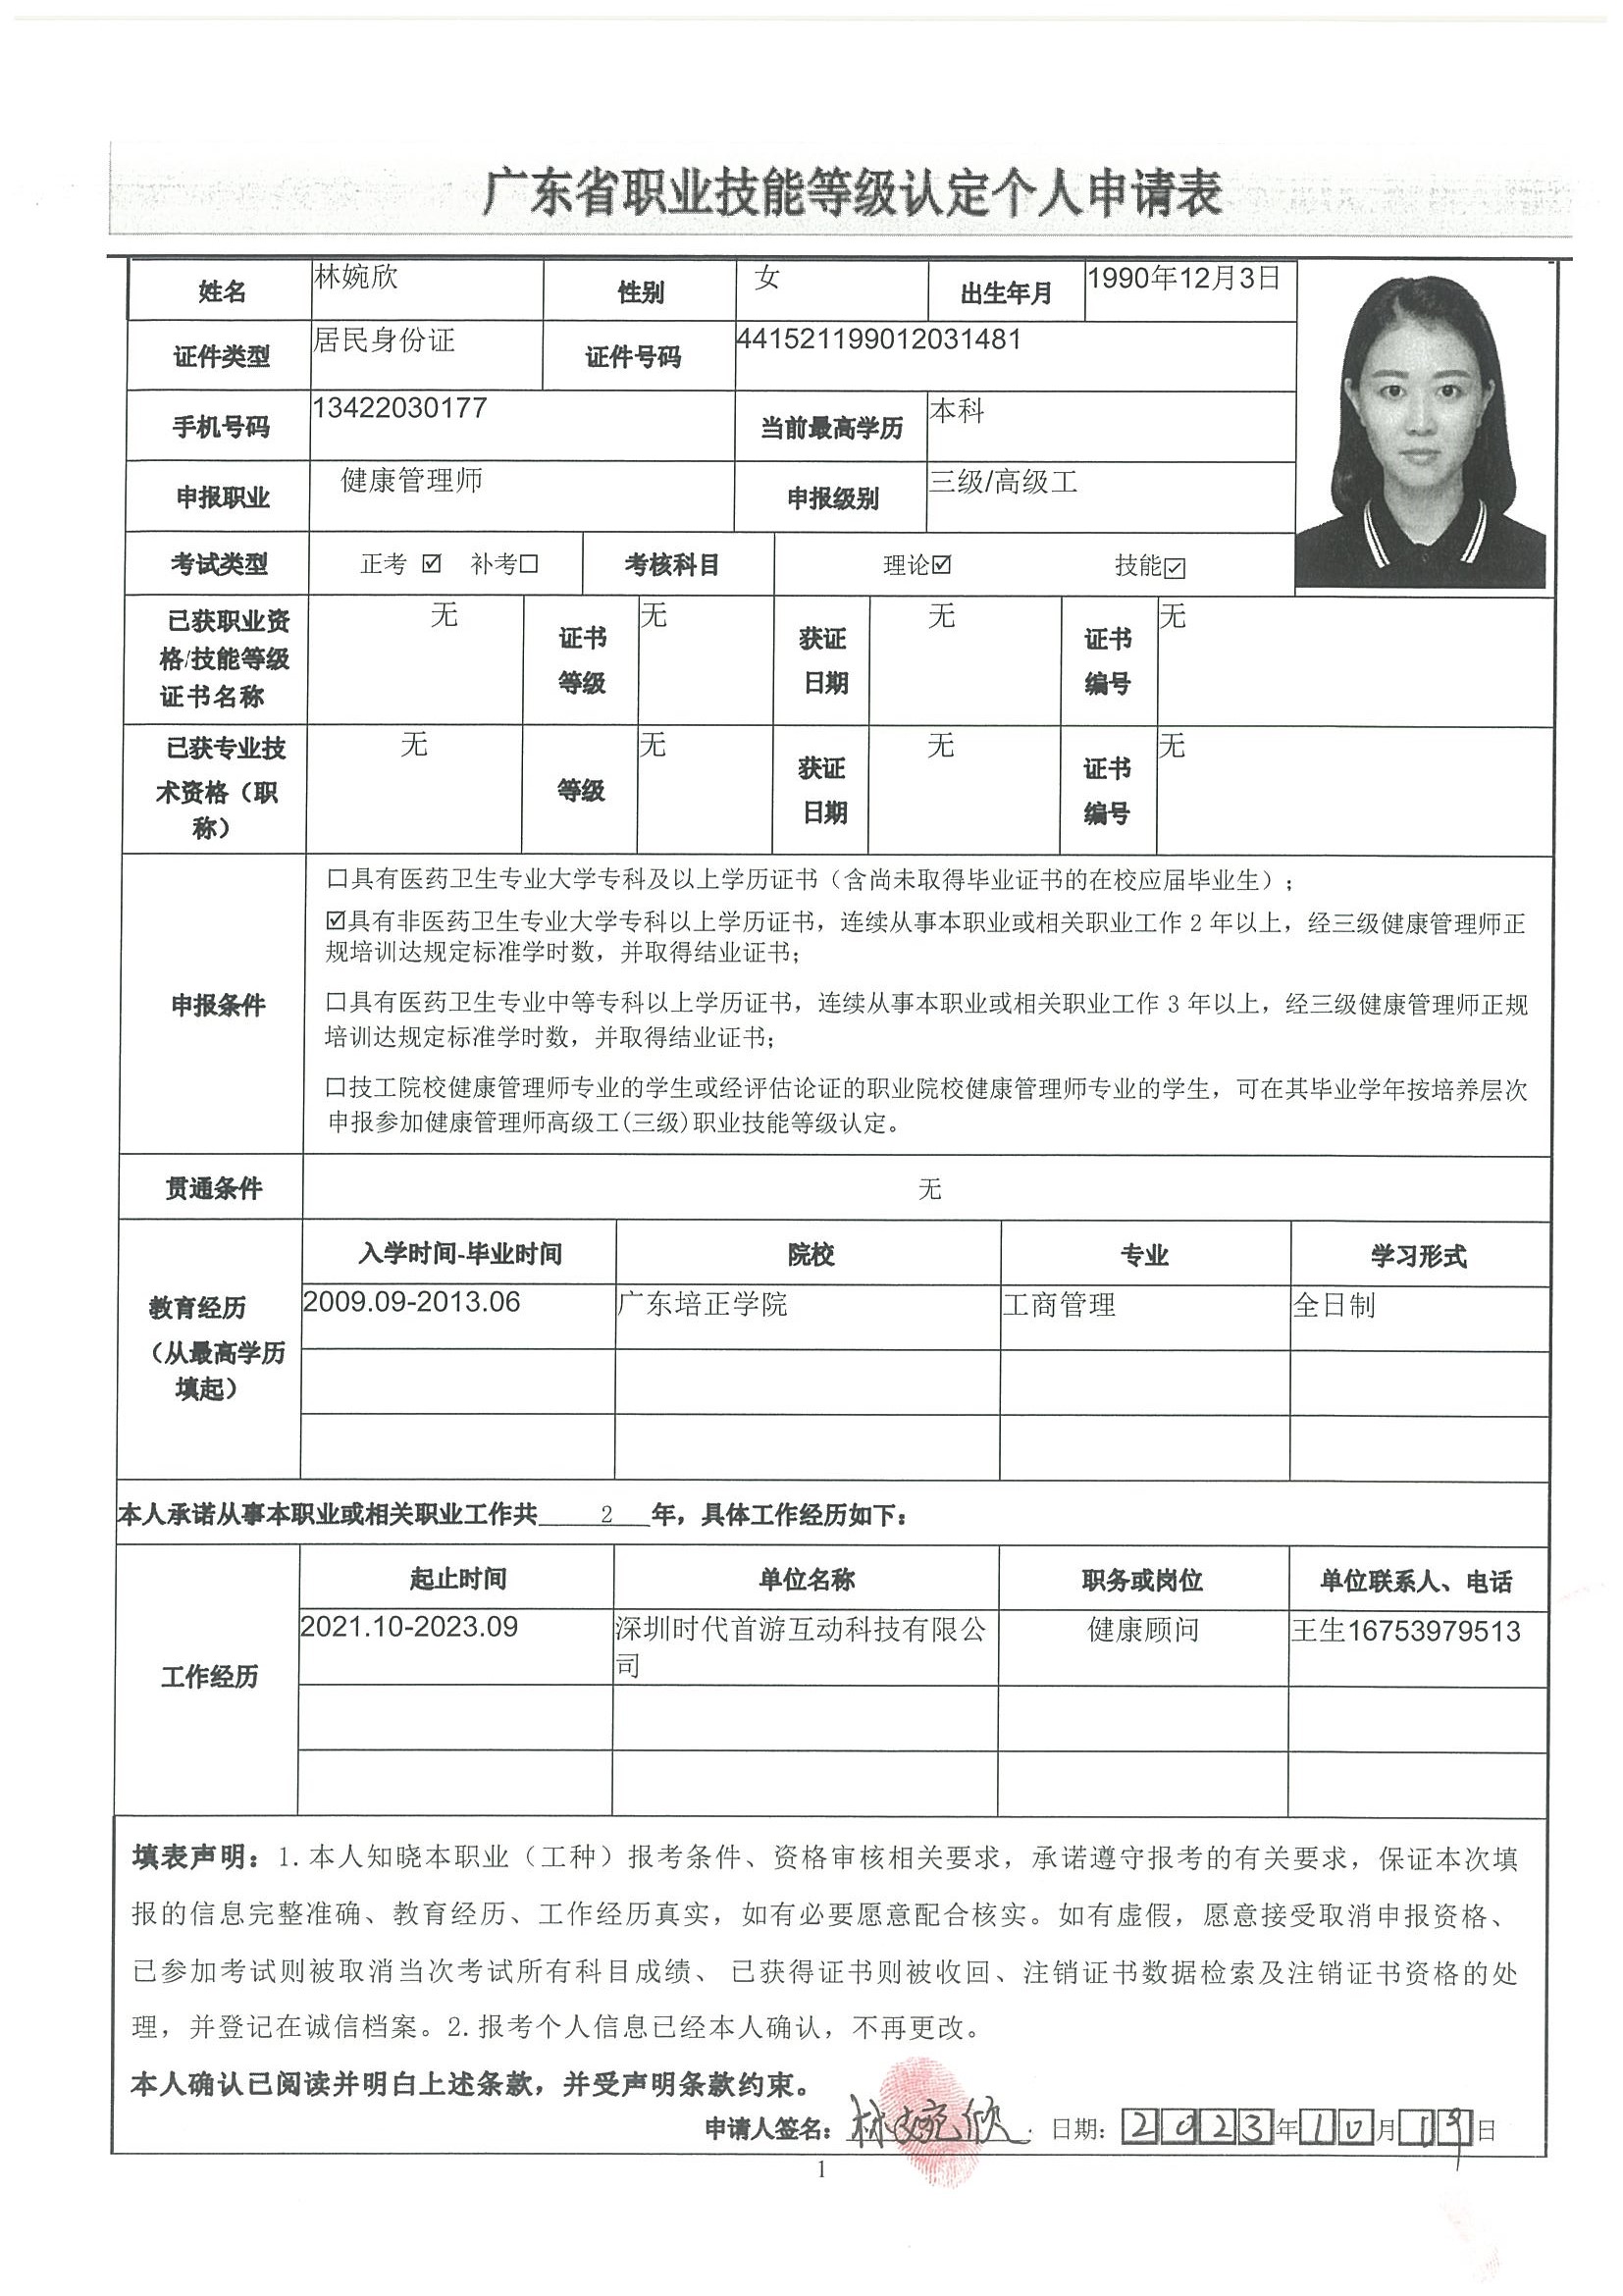 广东省职业技能等级认定个人申请表
姓名 林婉欣 性别 女 出生年月 1990年12月3日
证件类型 居民身份证 证件号码 441521199012031481
手机号码 13422030177 当前最高学历 本科
申报职业 健康管理师 申报级别 三级/高级工
考试类型 正考 ☑ 补考☐ 考核科目 理论☑ 技能☑
已获职业资
格/技能等级
证书名称
无
证书
等级
无
获证
日期
无
证书
编号
无
已获专业技
术资格（职
称）
无
等级
无
获证
日期
无
证书
编号
无
申报条件
☐具有医药卫生专业大学专科及以上学历证书（含尚未取得毕业证书的在校应届毕业生）；
☑具有非医药卫生专业大学专科以上学历证书，连续从事本职业或相关职业工作 2 年以上，经三级健康管理师正
规培训达规定标准学时数，并取得结业证书；
☐具有医药卫生专业中等专科以上学历证书，连续从事本职业或相关职业工作 3 年以上，经三级健康管理师正规
培训达规定标准学时数，并取得结业证书；
☐技工院校健康管理师专业的学生或经评估论证的职业院校健康管理师专业的学生，可在其毕业学年按培养层次
申报参加健康管理师高级工(三级)职业技能等级认定。
贯通条件 无
教育经历
（从最高学历
填起）
入学时间-毕业时间 院校 专业 学习形式
2009.09-2013.06 广东培正学院 工商管理 全日制
本人承诺从事本职业或相关职业工作共 2 年，具体工作经历如下：
工作经历
起止时间 单位名称 职务或岗位 单位联系人、电话
2021.10-2023.09 深圳时代首游互动科技有限公 健康顾问 王生16753979513
司
填表声明：1.本人知晓本职业（工种）报考条件、资格审核相关要求，承诺遵守报考的有关要求，保证本次填
报的信息完整准确、教育经历、工作经历真实，如有必要愿意配合核实。如有虚假，愿意接受取消申报资格、
已参加考试则被取消当次考试所有科目成绩、 已获得证书则被收回、注销证书数据检索及注销证书资格的处
理，并登记在诚信档案。2.报考个人信息已经本人确认，不再更改。
本人确认已阅读并明白上述条款，并受声明条款约束。
申请人签名：林婉欣 日期：2023年10月19日
1